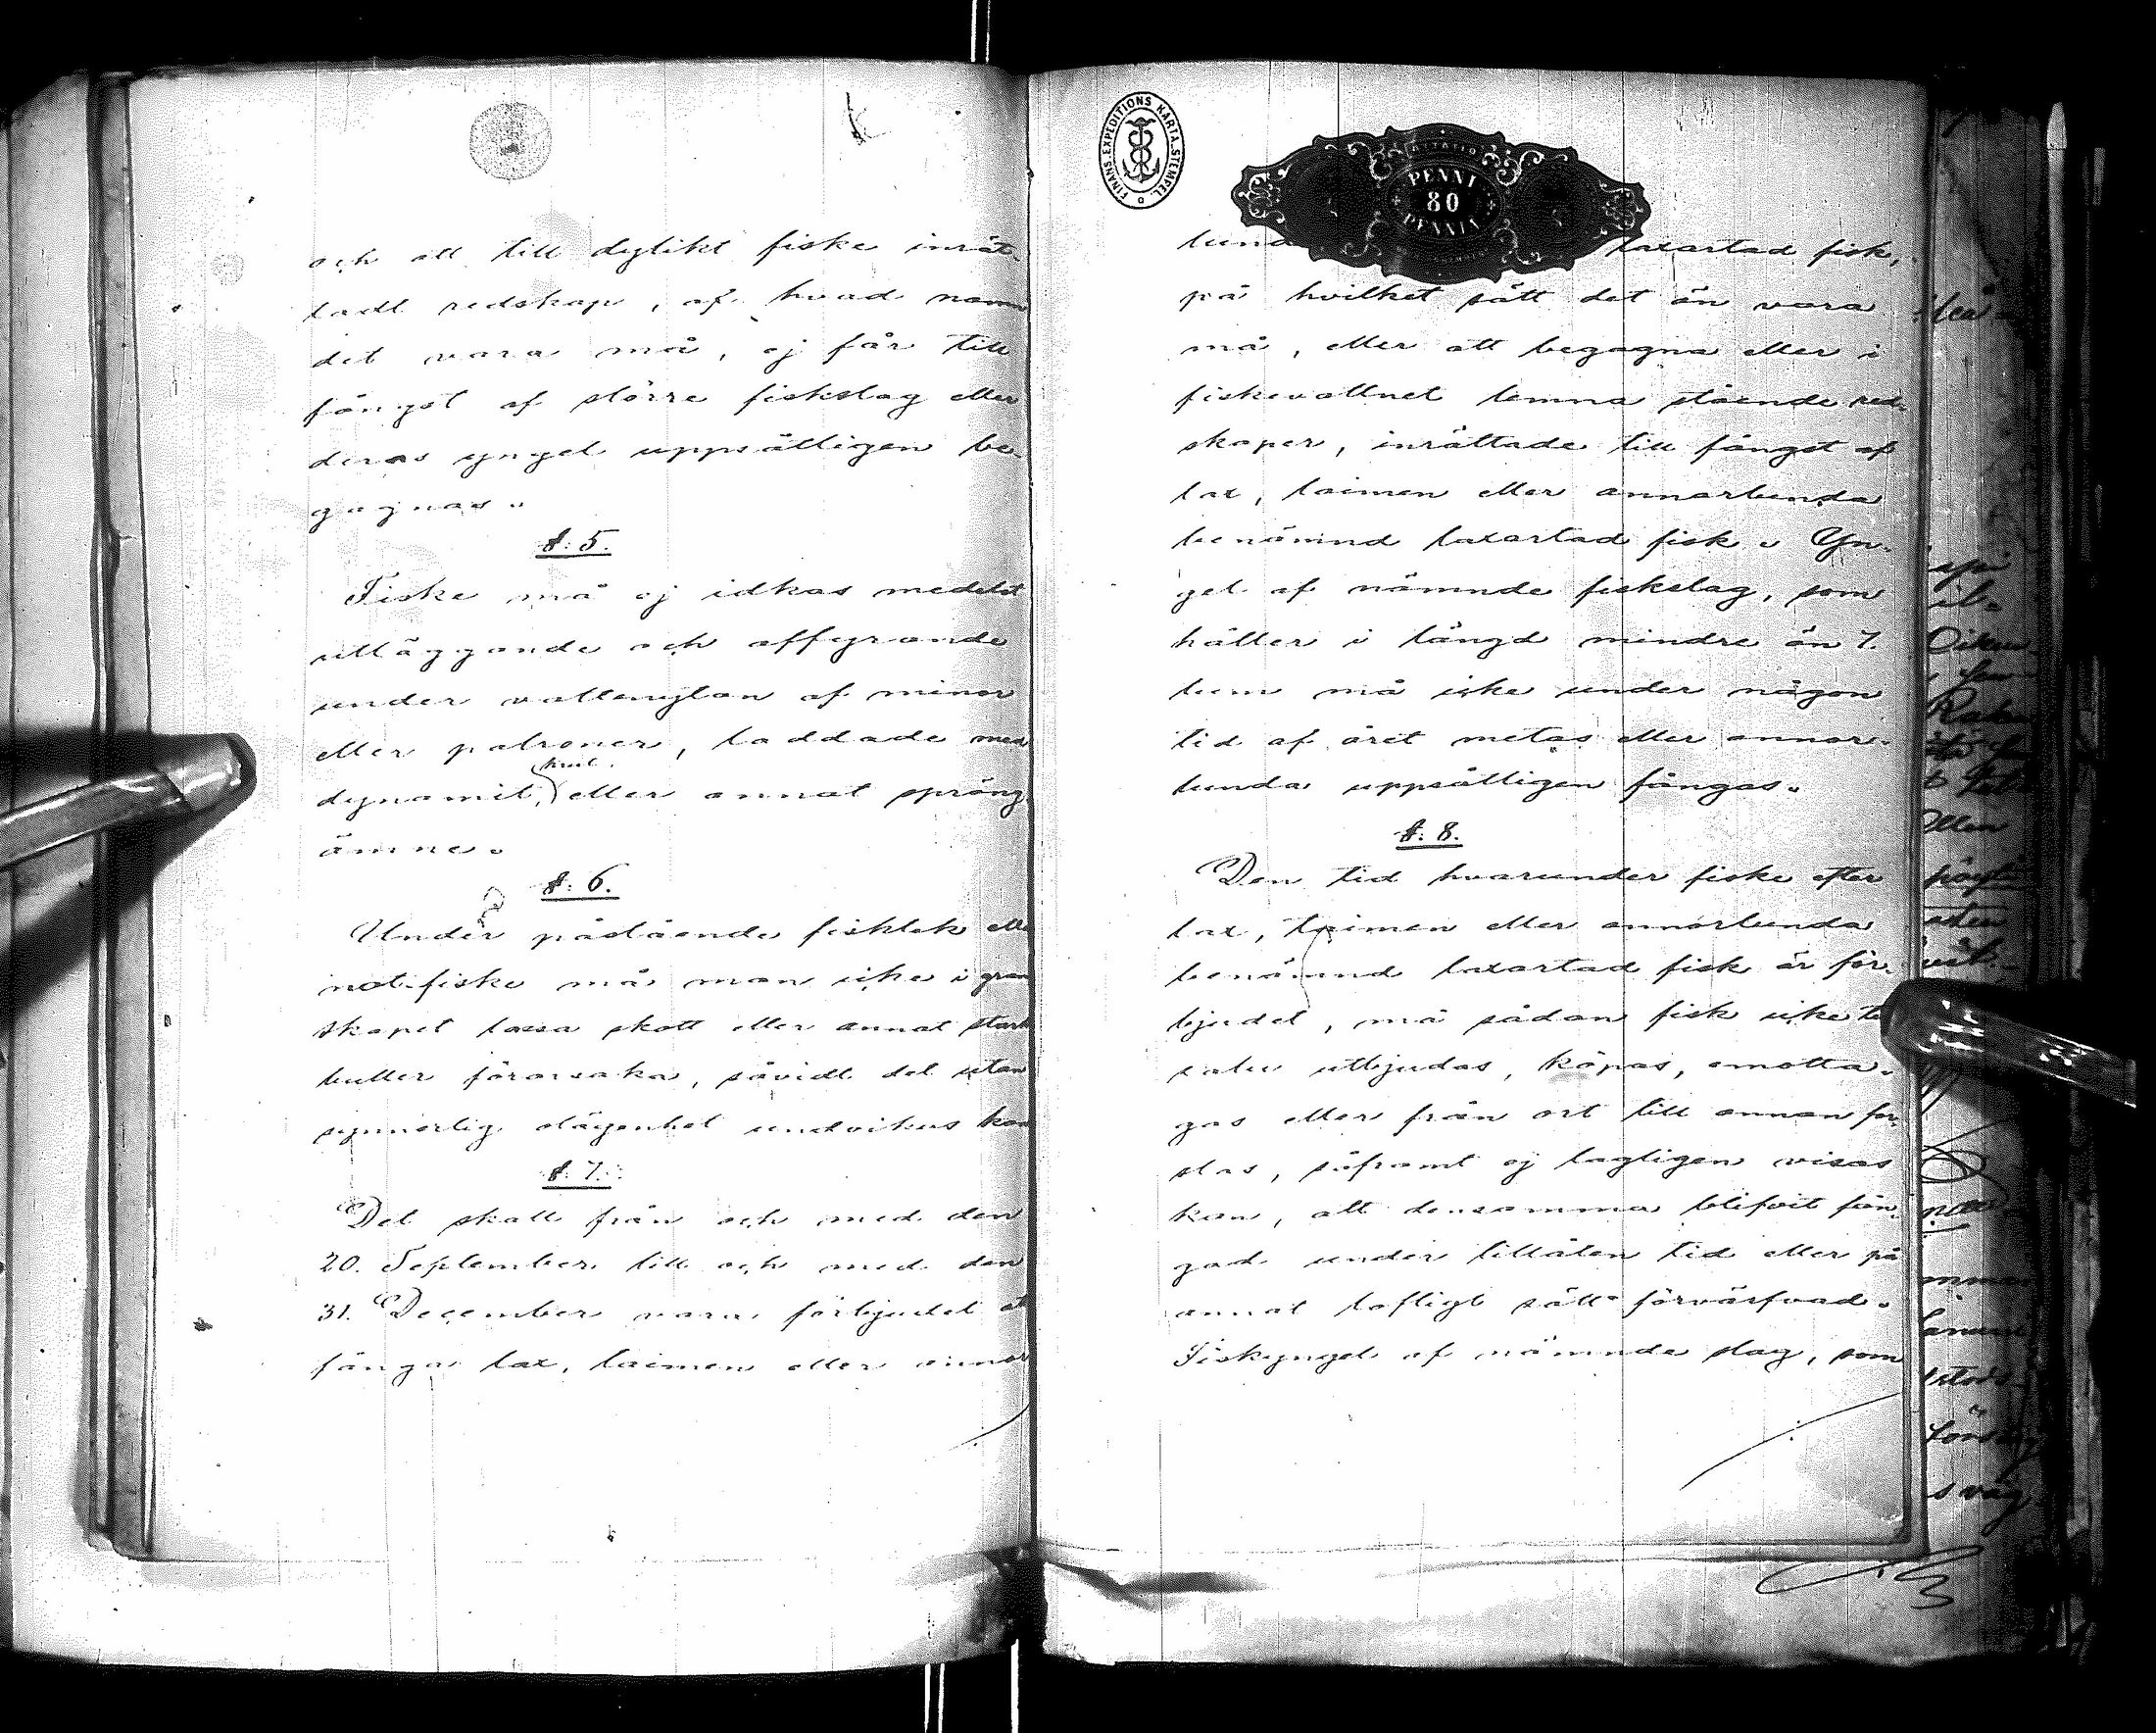 och att till dylikt fiske inrät-
tadt redskap, af hvad namn
det vara må, ej får till
fångst af större fiskslag eller
deras yngel uppsåtligen be-
gagnas.
§. 5.
Fiske må ej idkas medelst
utläggande och affyrande
under vattenytan af minor
eller patroner, laddade med
krut.
dynamit, eller annat spräng
ämne.
§. 6.
Under påstående fisklek eller
notfiske må man icke i gran
skapet lossa skott eller annat starkt
buller förorsaka, såvidt det utan
synnerlig olägenhet undvikas kan
§. 7.
Det skall från och med den
20. September till och med den
31. December vara förbjudet att
fånga lax, taimen eller annor
FINANS.EXPEDITIONS KARTA.STEMPEL.
PENNI
80
PENNIÄ
lund laxartad fisk,
på hvilket sätt det än vara
må, eller att begagna eller i
fiskevattnet lemna stående red-
skaper, inrättade till fångst af
lax, taimen eller annorlunda
benämnd laxartad fisk. Yn-
gel af nämnde fiskslag, som
håller i längd mindre än 7.
tum må icke under någon
tid af året metas eller annor-
lunda uppsåtligen fångas.
§. 8.
Den tid hvarunder fiske efter
lax, taimen eller annorlunda
benämnd laxartad fisk är för-
bjudet, må sådan fisk icke
salu utbjudas, köpas, emotta-
gas eller från ort till annan for-
slas, såframt ej lagligen visas
kan, att densamma blifvit fån-
gad under tillåten tid eller på
annat lofligt sätt förvärfvad.
Fiskyngel af nämnde slag, som